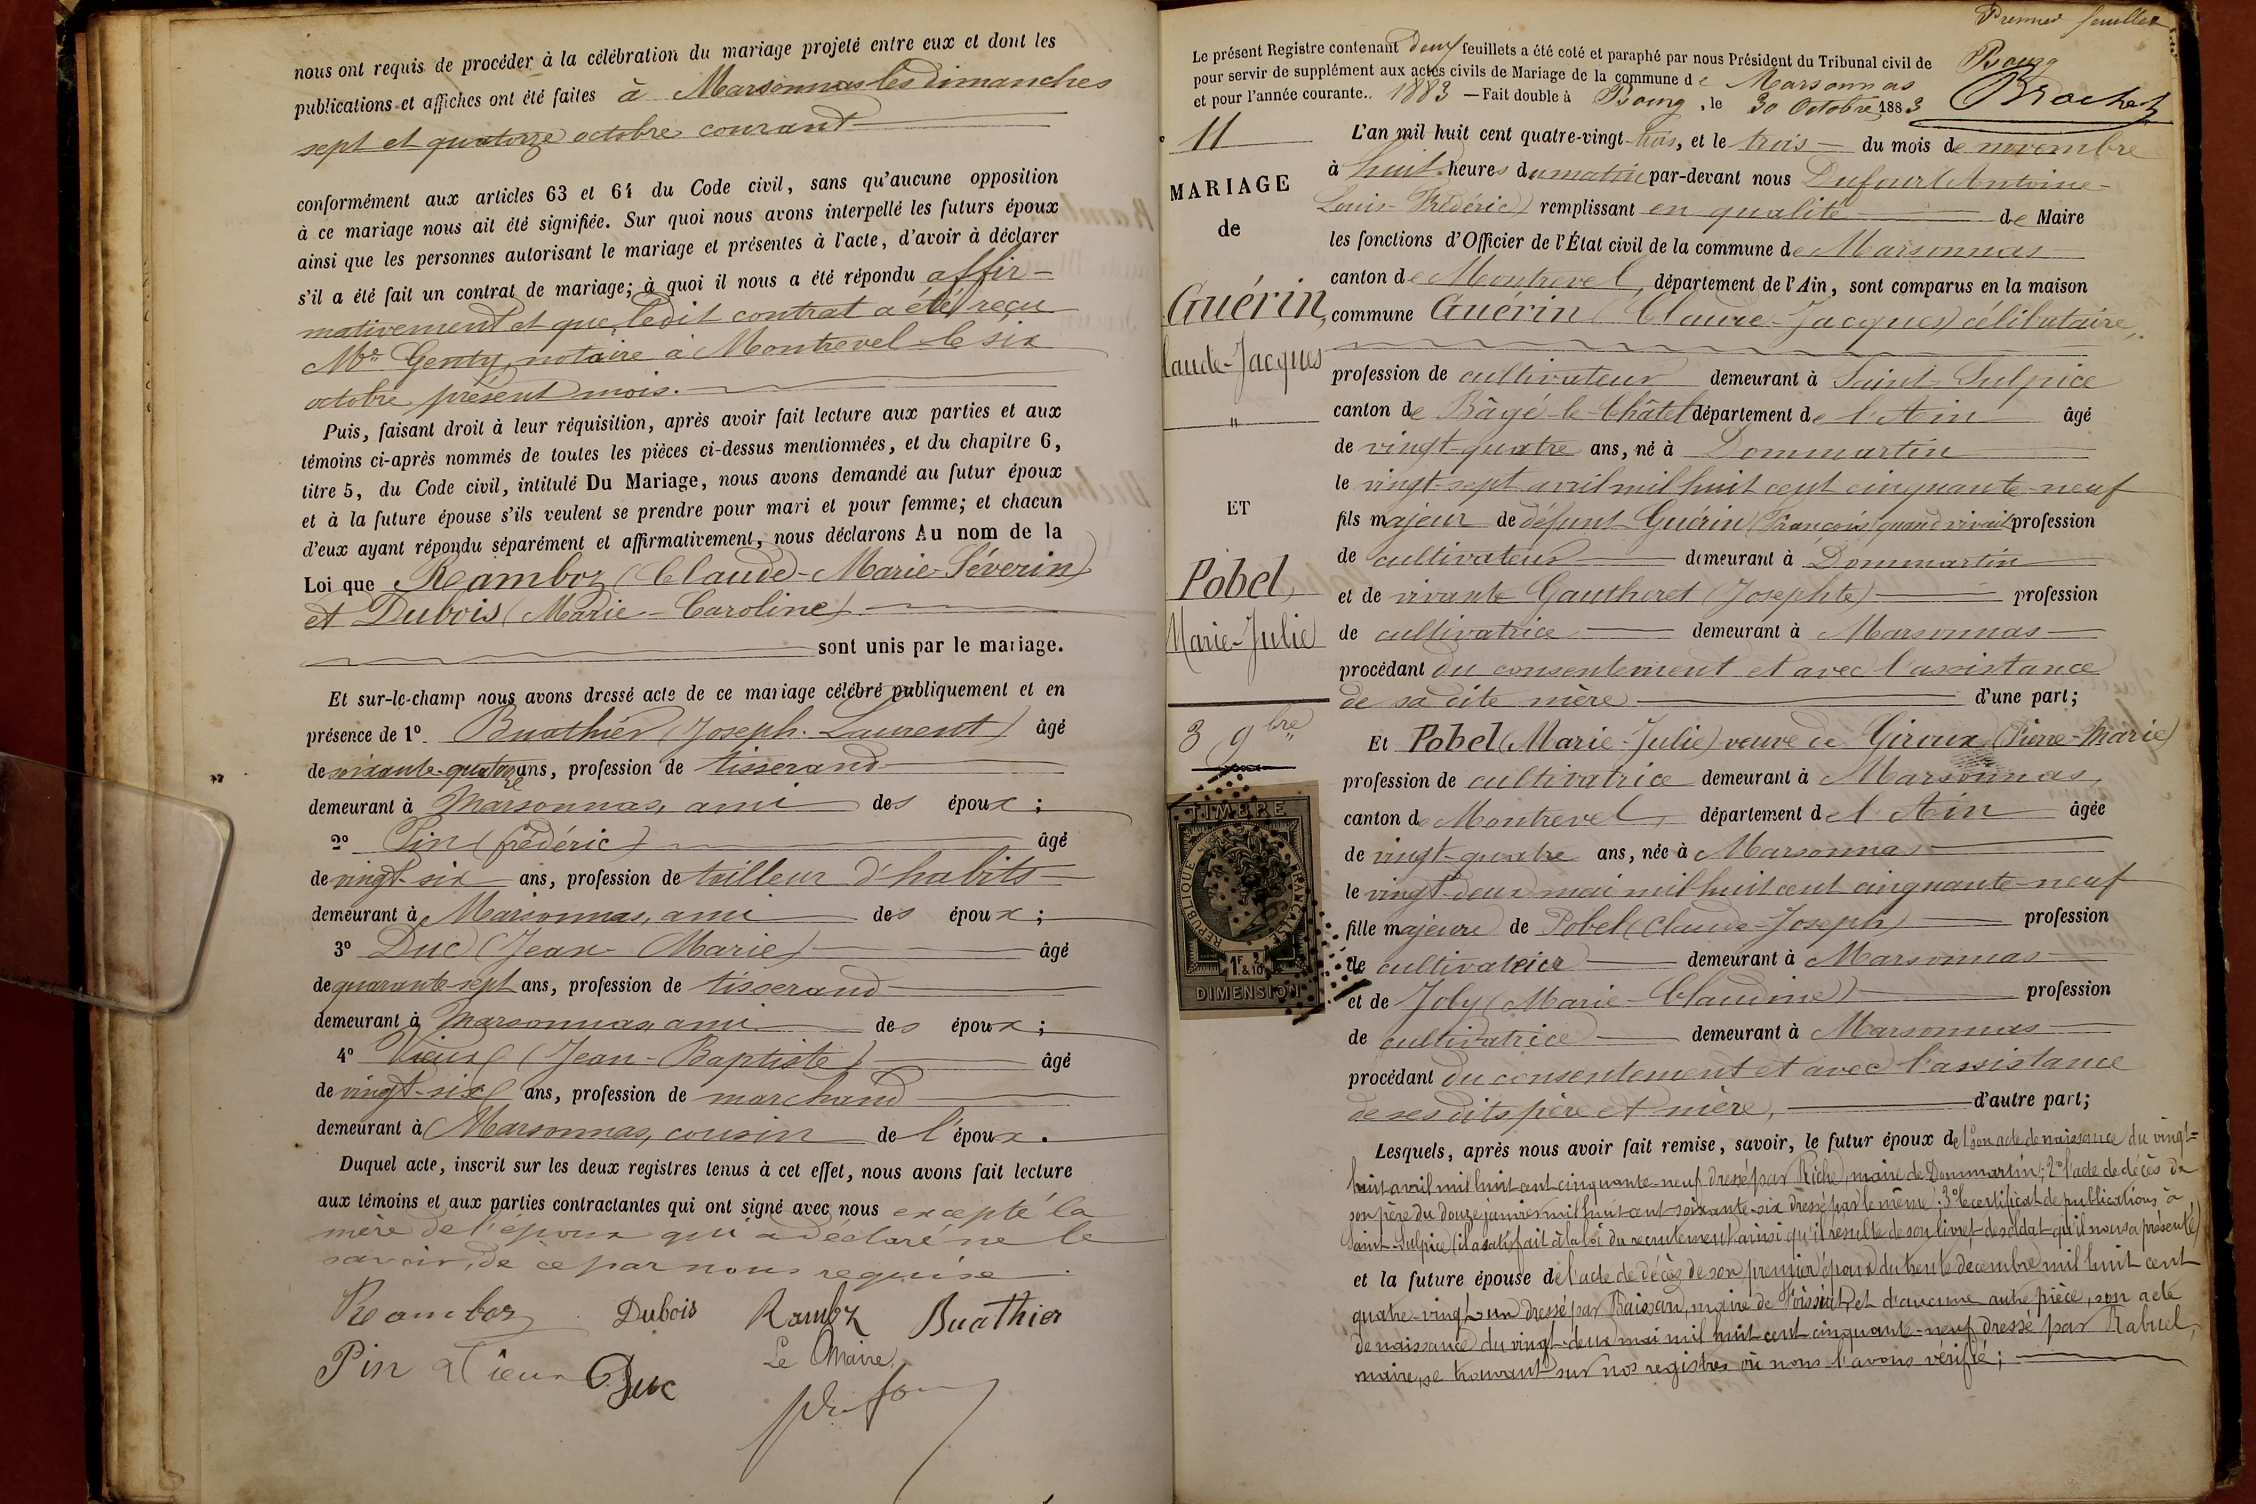 nous ont requis de procéder à la célébration du mariage projeté entre eux et dont les
publications et affiches ont été faites à Marsonnas les dimanches
sept et quatorze octobre courant
conformément aux articles 63 et 64 du Code civil, sans qu'aucune opposition
à ce mariage nous ait été signifiée. Sur quoi nous avons interpellé les futurs époux
ainsi que les personnes autorisant le mariage et présentes à l'acte, d'avoir à déclarer
s'il a été fait un contrat de mariage; à quoi il nous a été répondu affir-
mativement et que ledit contrat a été reçu
Mr. Genty, notaire à Montrevel le six
octobre présent mois.
Puis, faisant droit à leur réquisition, après avoir fait lecture aux parties et aux
témoins ci-après nommés de toutes les pièces ci-dessus mentionnées, et du chapitre 6,
titre 5, du Code civil, intitulé Du Mariage, nous avons demandé au futur époux
et à la future épouse s'ils veulent se prendre pour mari et pour femme; et chacun
d'eux ayant répondu séparément et affirmativement, nous déclarons Au nom de la
Loi que Reamboz (Claude-Marie-Séverin)
et Dubois (Marie-Caroline)
sont unis par le mariage.
Et sur-le-champ nous avons dressé acte de ce mariage célébré publiquement et en
présence de 1º Buathier (Joseph-Laurent) âgé
de soixante-quatorze ans, profession de tisserand
demeurant à Marsonnas, ami des époux;
2º Pin (frédéric) âgé
de vingt-six ans, profession de tailleur d'habits
demeurant à Marsonnas, ami des époux;
3º Duc (Jean-Marie) âgé
de quarante-sept ans, profession de tisserand
demeurant à Marsonnas, ami des époux;
4º Vieux (Jean-Baptiste) âgé
de vingt-six ans, profession de marchand
demeurant à Marsonnas, cousin de l'époux.
Duquel acte, inscrit sur les deux registres tenus à cet effet, nous avons fait lecture
aux témoins et aux parties contractantes qui ont signé avec nous excepté la
mère de l'époux qui a déclaré ne le
savoir, de ce par nous requise.
Reamboz Dubois Buathier
Pin Vieux Duc Le Maire,
Premier feuillet
Le présent Registre contenant deux feuillets a été coté et paraphé par nous Président du Tribunal civil de Bourg
pour servir de supplément aux actes civils de Mariage de la commune de Marsonnas
et pour l'année courante.. 1883 — Fait double à Bourg, le 30 Octobre 1883 Brochet
11
MARIAGE
de
Guérin,
laude-Jacques
"
ET
Pobel,
Marie-Julie
3 9bre
TIMBRE
RÉPUBLIQUE FRANÇAISE
1F 2/10
&
DIMENSION
L'an mil huit cent quatre-vingt-trois, et le trois du mois de novembre
à huit heures du matin par-devant nous Dufour (Antoine-
Louis-Frédéric) remplissant en qualité de Maire
les fonctions d'Officier de l'État civil de la commune de Marsonnas
canton de Montrevel, département de l'Ain, sont comparus en la maison
commune Guérin (Claude-Jacques) célibataire,
profession de cultivateur demeurant à Saint-Sulpice
canton de Bâgé-le-Châtel département de l'Ain âgé
de vingt-quatre ans, né à Dommartin
le vingt-sept avril mil huit cent cinquante-neuf
fils majeur de défunt Guérin (François) quand vivait profession
de cultivateur demeurant à Dommartin
et de vivante Gautheret (Josephte) profession
de cultivatrice demeurant à Marsonnas
procédant du consentement et avec l'assistance
de sa dite mère d'une part;
Et Pobel (Marie-Julie) veuve de Giroux (Pierre-Marie)
profession de cultivatrice demeurant à Marsonnas,
canton de Montrevel, département de l'Ain âgée
de vingt-quatre ans, née à Marsonnas
le vingt-deux mai mil huit cent cinquante-neuf
fille majeure de Pobel (Claude-Joseph) profession
de cultivateur demeurant à Marsonnas
et de Joly (Marie-Claudine) profession
de cultivatrice demeurant à Marsonnas
procédant du consentement et avec l'assistance
de ses dits père et mère, d'autre part;
Lesquels, après nous avoir fait remise, savoir, le futur époux de 1º son acte de naissance du vingt-
huit avril mil huit cent cinquante-neuf dressé par Riche, maire de Dommartin; 2º l'acte de décès de
son père du douze janvier mil huit cent soixante-six dressé par le même; 3º le certificat de publications à
Saint-Sulpice (il a satisfait à la loi du recrutement ainsi qu'il résulte de son livret de soldat qu'il nous a présenté)
et la future épouse de l'acte de décès de son premier époux du trente décembre mil huit cent
quatre-vingt-un dressé par Baissard, maire de Foissiat, et d'aucune autre pièce, son acte
de naissance du vingt-deux mai mil huit cent cinquante-neuf dressé par Rabuel,
maire, se trouvant sur nos registres où nous l'avons vérifié;